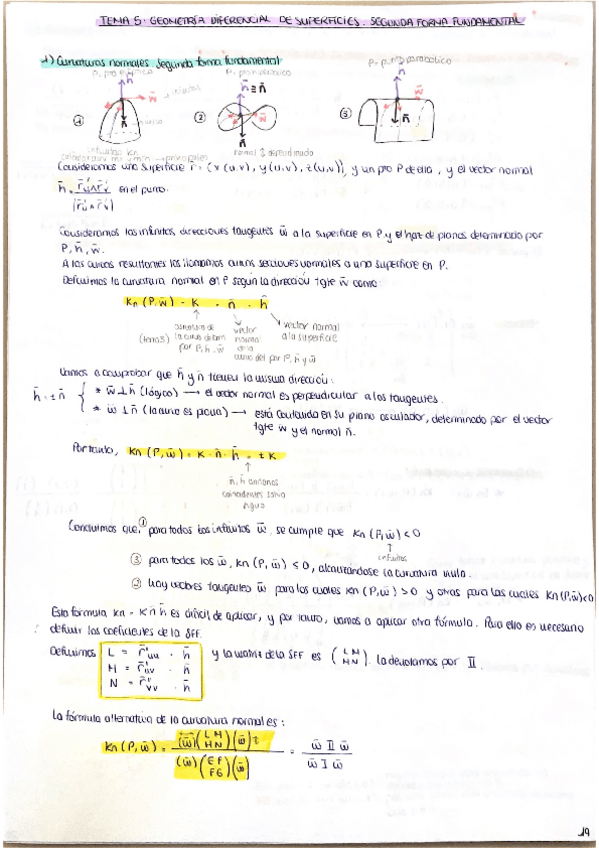 TEMA 5. GEOMETRÍA DIFERENCIAL DE SUPERFICIES. SEGUNDA FORMA FUNDAMENTAL
1) Curvaturas normales. Segunda forma fundamental
P= pto parabólico
① ② ③
Consideramos una superficie r̄ = (x(u,v), y(u,v), z(u,v)), y un pto P de ella, y el vector normal
h̄ = r̄'u∧r̄'v / |r̄'u∧r̄'v| en el punto.
Consideramos las infinitas direcciones tangentes w̄ a la superficie en P y el haz de planos determinado por
P, h̄, w̄.
A las curvas resultantes las llamamos curvas secciones normales a una superficie en P.
Definimos la curvatura normal en P según la dirección tgte w̄ como
Kn (P,w̄) = K · n̄ · h̄
(tema 5) curvatura de la curva determ por P, h̄, w̄
vector normal de la curva del por P, h̄ y w̄
vector normal a la superficie
Vamos a comprobar que h̄ y n̄ tienen la misma dirección:
h̄ = ± n̄ { * w̄ ⊥ h̄ (lógico) → el vector normal es perpendicular a los tangentes.
* w̄ ⊥ n̄ (la curva es plana) → está contenida en su plano osculador, determinado por el vector
tgte w̄ y el normal n̄.
Por tanto, Kn (P,w̄) = K · n̄ · h̄ = ± K
n̄, h̄ unitarios
coincidentes salvo
signo
Concluimos que, ① para todos los infinitos w̄, se cumple que Kn (P,w̄) < 0
infinitos
③ para todos los w̄, Kn (P,w̄) ≤ 0, alcanzándose la curvatura nula.
② hay vectores tangentes w̄ para los cuales Kn (P,w̄) > 0 y otros para los cuales Kn (P,w̄) < 0
Esta fórmula Kn = K n̄ h̄ es difícil de aplicar, y por tanto, vamos a aplicar otra fórmula. Para ello es necesario
definir los coeficientes de la SFF.
Definimos L = r̄''uu · h̄ y la matriz de la SFF es (L M / M N). La denotamos por II.
M = r̄''uv · h̄
N = r̄''vv · h̄
La fórmula alternativa de la curvatura normal es:
Kn (P,w̄) = (w̄)(L M / M N)(w̄)t / (w̄)(E F / F G)(w̄) = w̄ II w̄ / w̄ I w̄
19